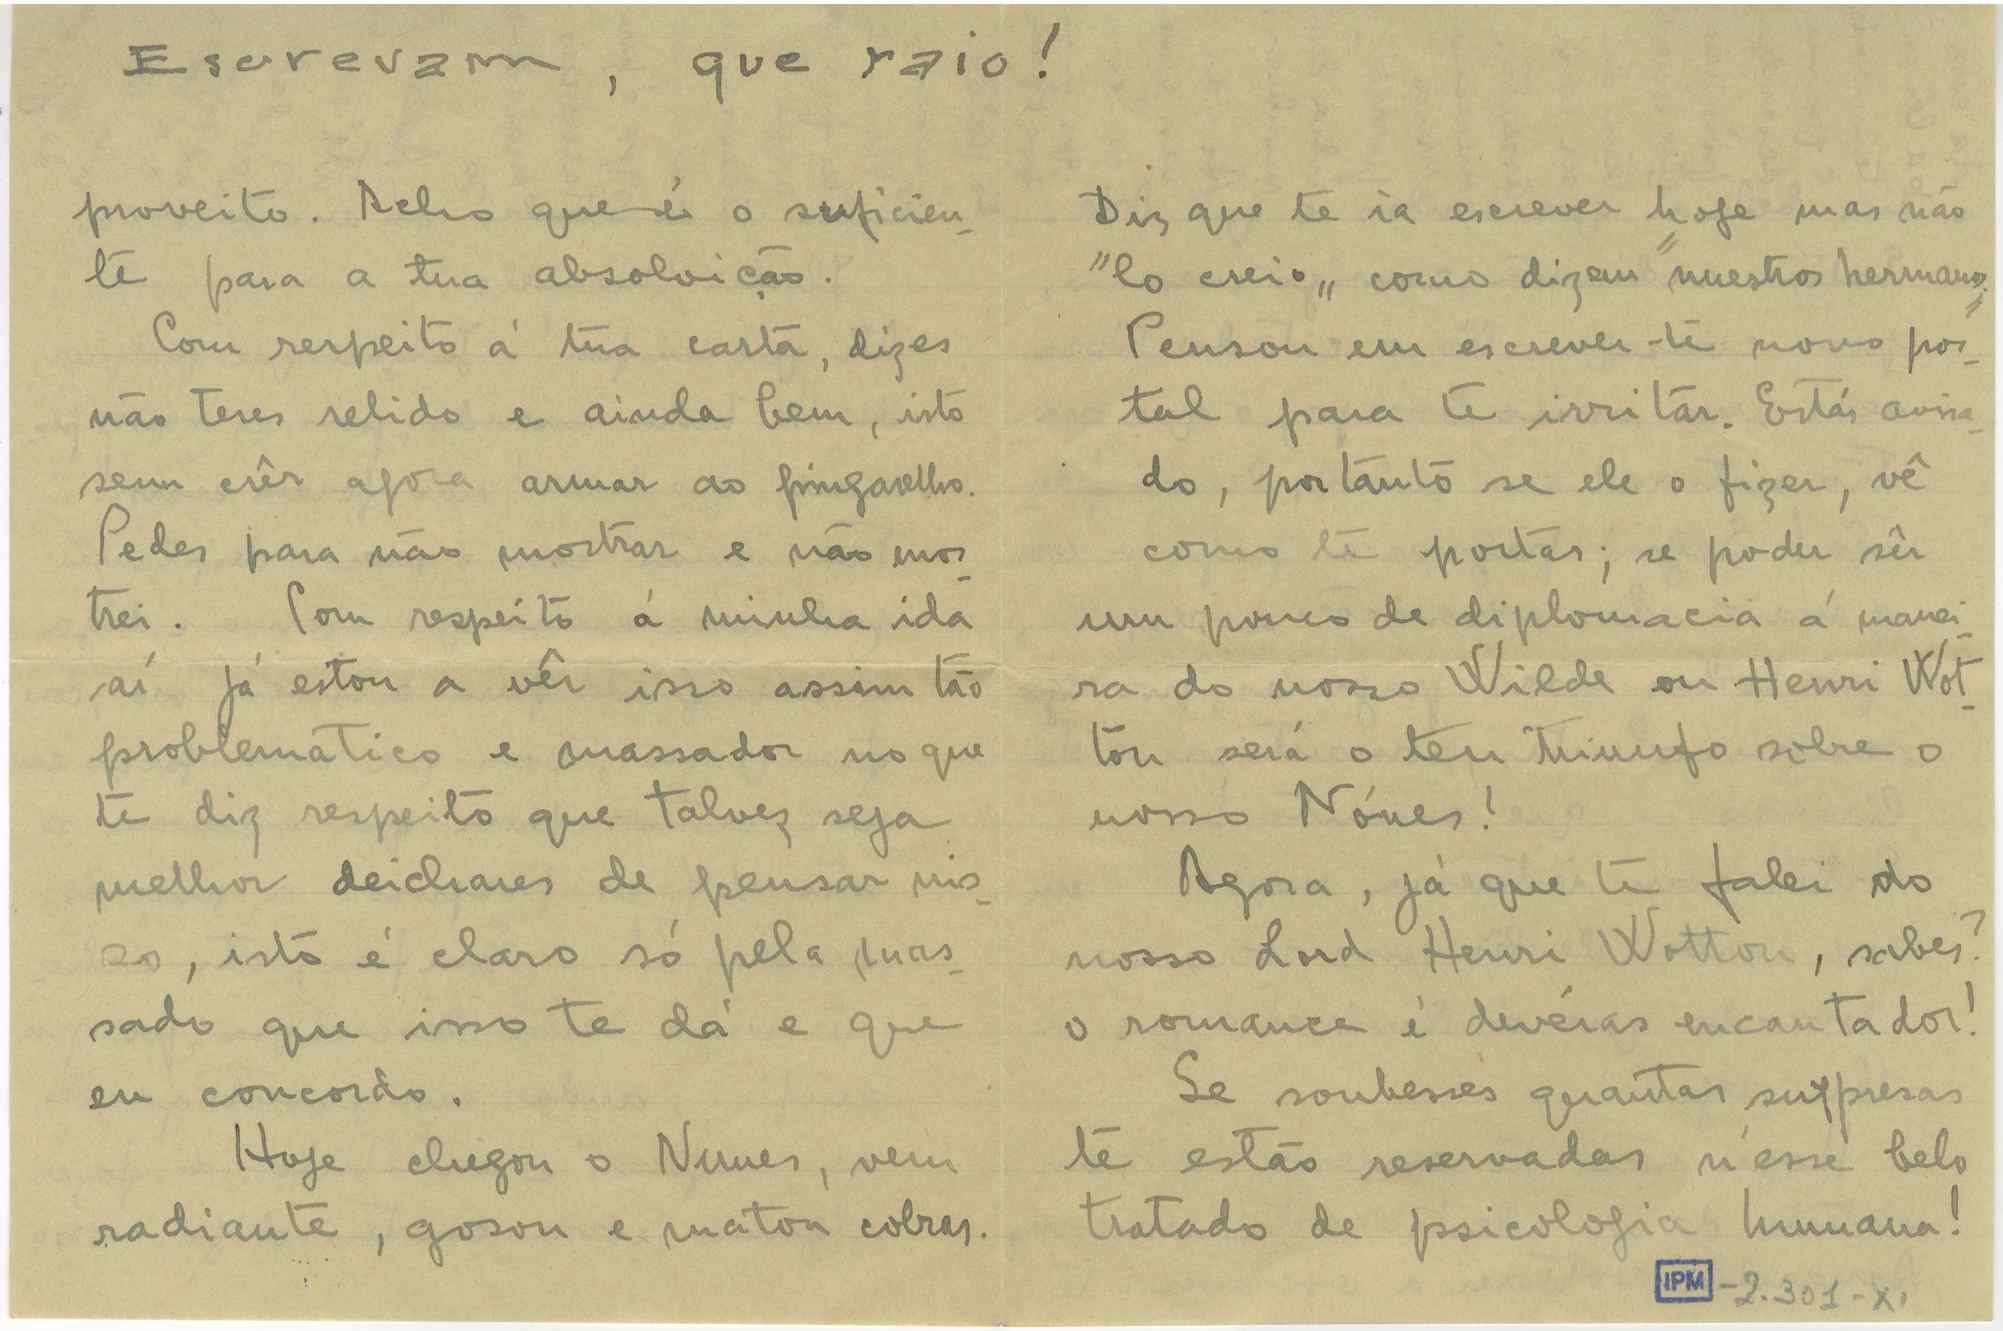 Escrevam, que raio!
proveito. Acho que é o suficien-
te para a tua absolvição.
Com respeito á tua carta, dizes
não teres relido e ainda bem, isto
sem crêr agora armar ao pingarelho.
Pedes para não mostrar e não mos-
trei. Com respeito á minha ida
aí já estou a vêr isso assim tão
problemático e massador no que
te diz respeito que talvez seja
melhor deichares de pensar nis-
so, isto é claro só pela mas-
sado que isso te dá e que
eu concordo.
Hoje chegou o Nunes, vem
radiante, gosou e matou cobras.
Diz que te ia escrever hoje mas não
"lo creio„ como dizem "nuestros hermanos"
Pensou em escrever-te novo pos-
tal para te irritar. Estás avisa-
do, portanto se ele o fizer, vê
como te portas; se poder sêr
um pouco de diplomacia á manei-
ra do nosso Wilde ou Henri Wot-
ton será o teu triunfo sobre o
nosso Nónes!
Agora, já que te falei do
nosso Lord Henri Wotton, sabes?
o romance é devéras encantador!
Se soubesses quantas surpresas
te estão reservadas n'esse belo
tratado de psicologia humana!
IPM-2.301-XI